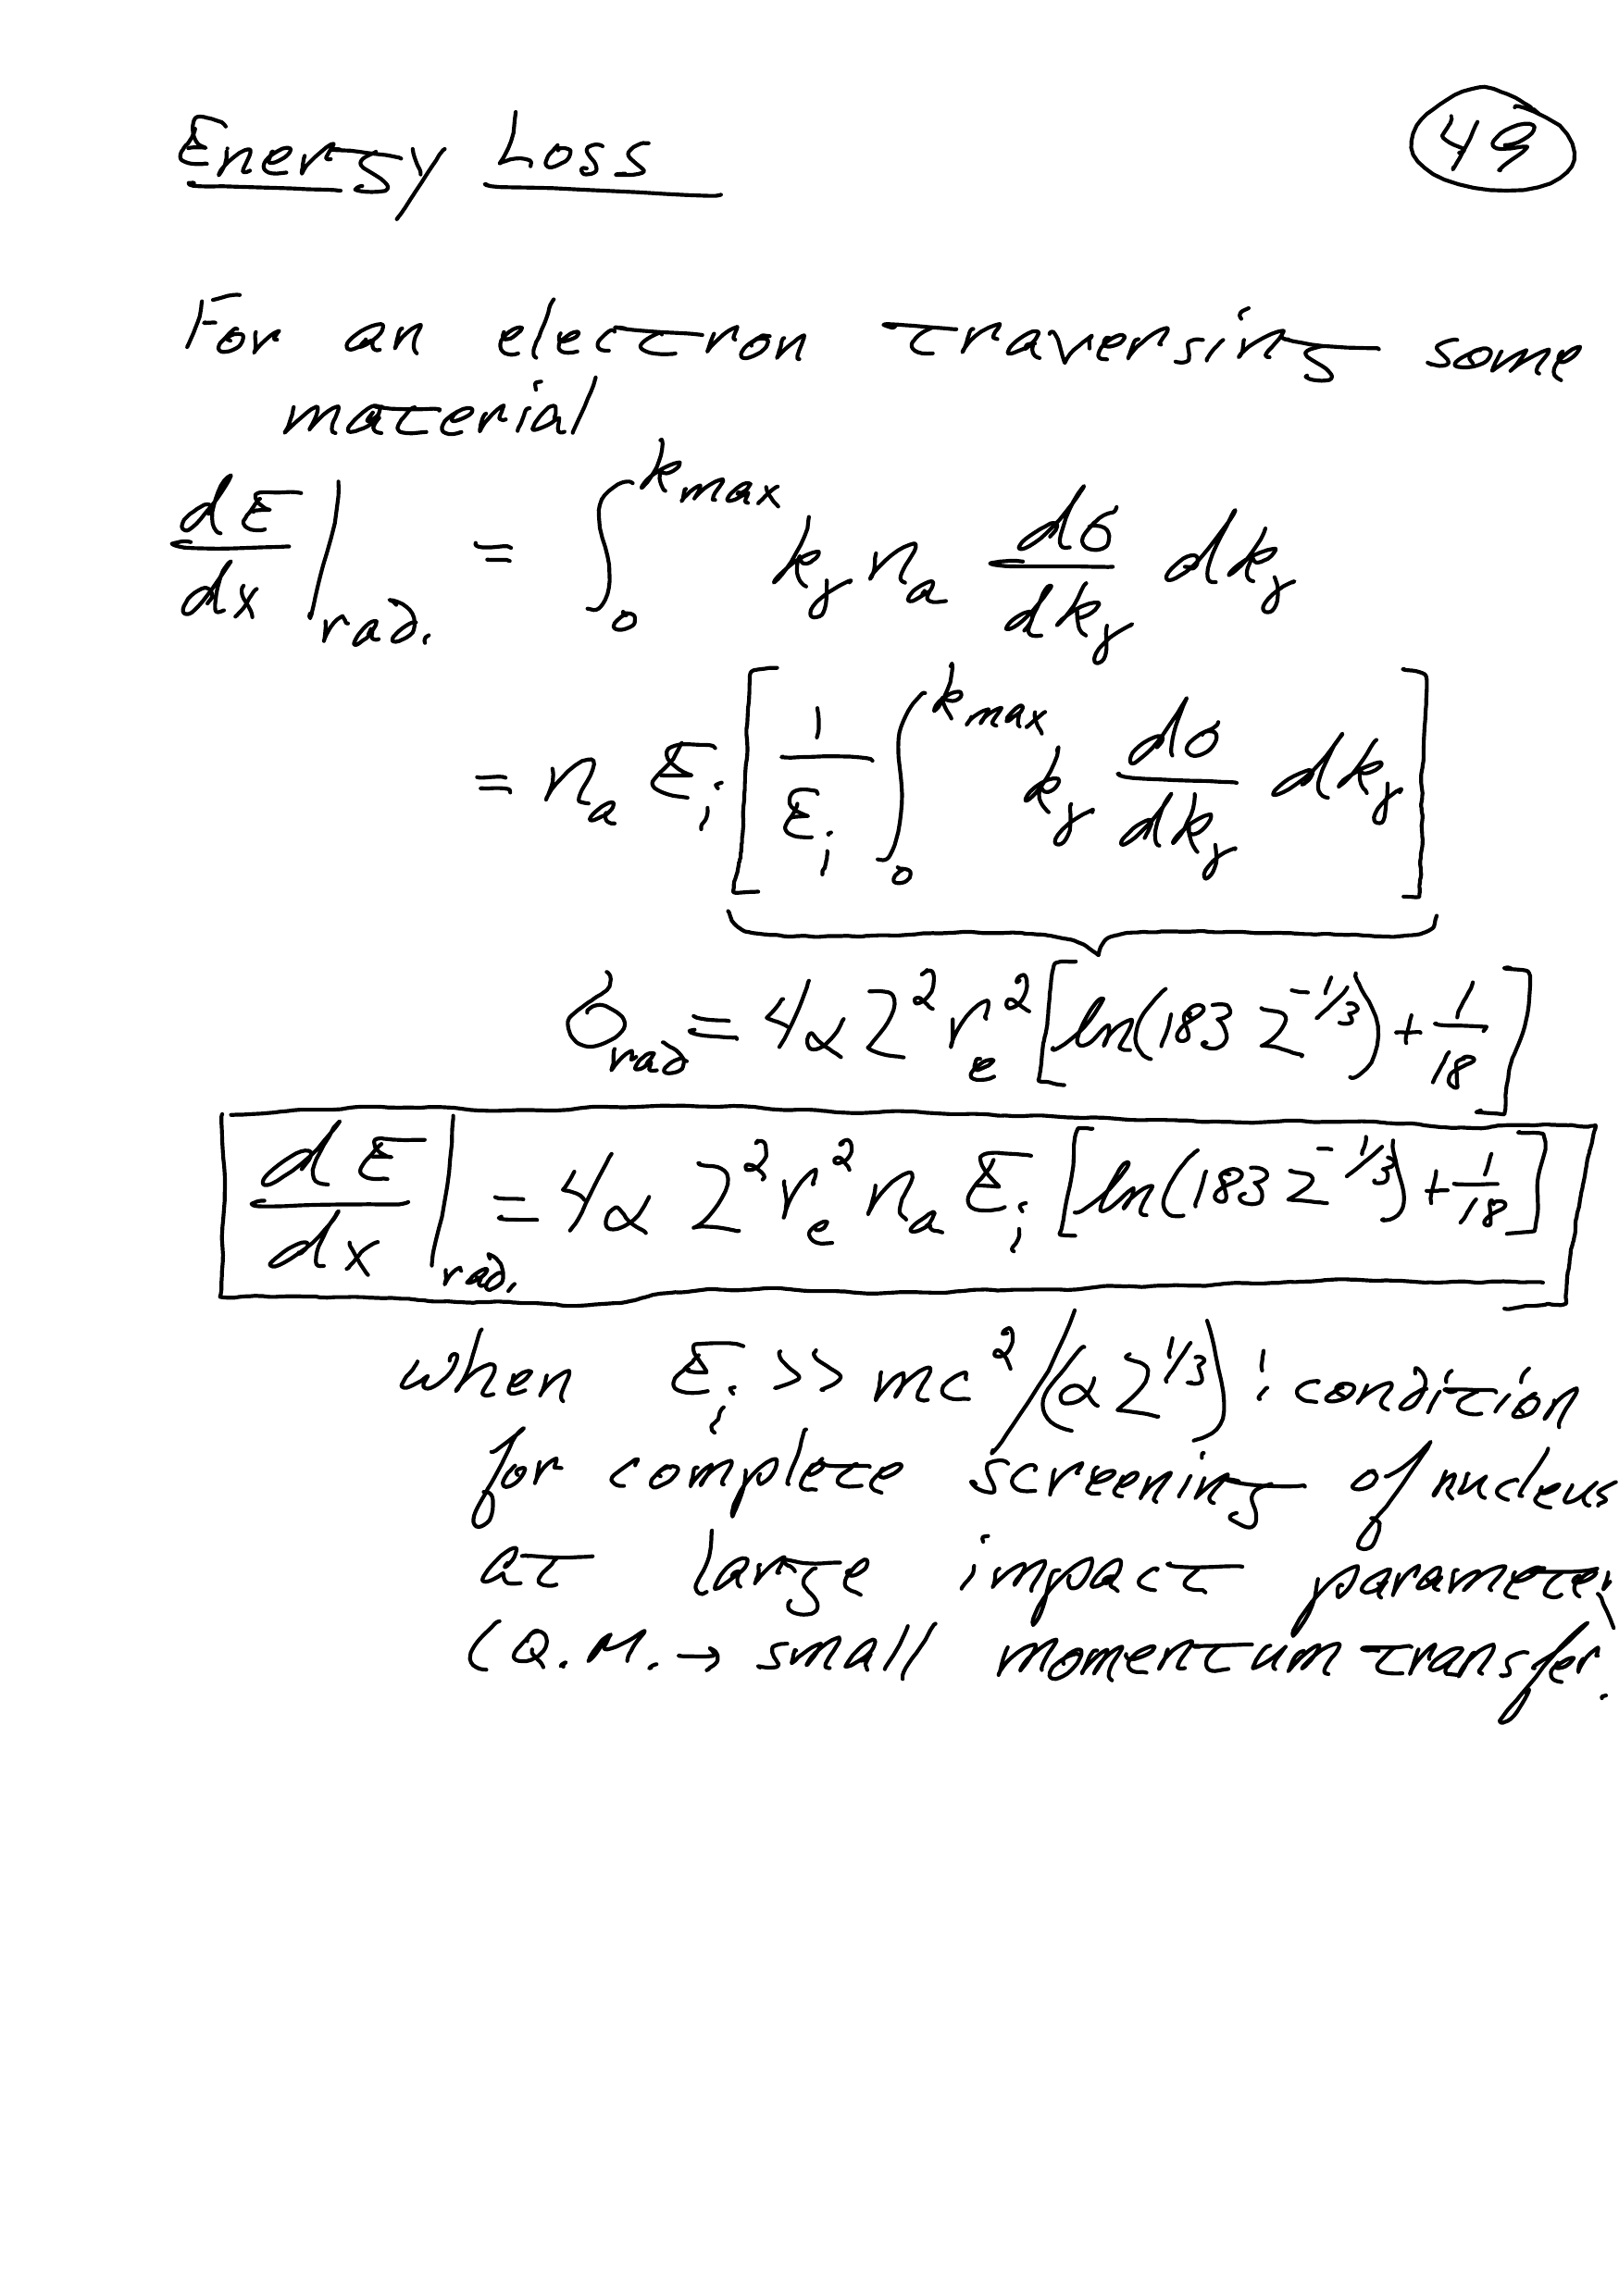 Energy Loss
43
For an electron traversing some
material
dE/dx |rad. = ∫₀^kmax kγ nₐ dσ/dkγ dkγ
= nₐ Eᵢ [ 1/Eᵢ ∫₀^kmax kγ dσ/dkγ dkγ ]
σrad = 4α Z² rₑ² [ln(183 Z^-1/3) + 1/18]
dE/dx |rad. = 4α Z² rₑ² nₐ Eᵢ [ln(183 Z^-1/3) + 1/18]
when Eᵢ >> mc²/(α Z^1/3) : condition
for complete screening of nucleus
at large impact parameter
(Q.M. → small momentum transfer.